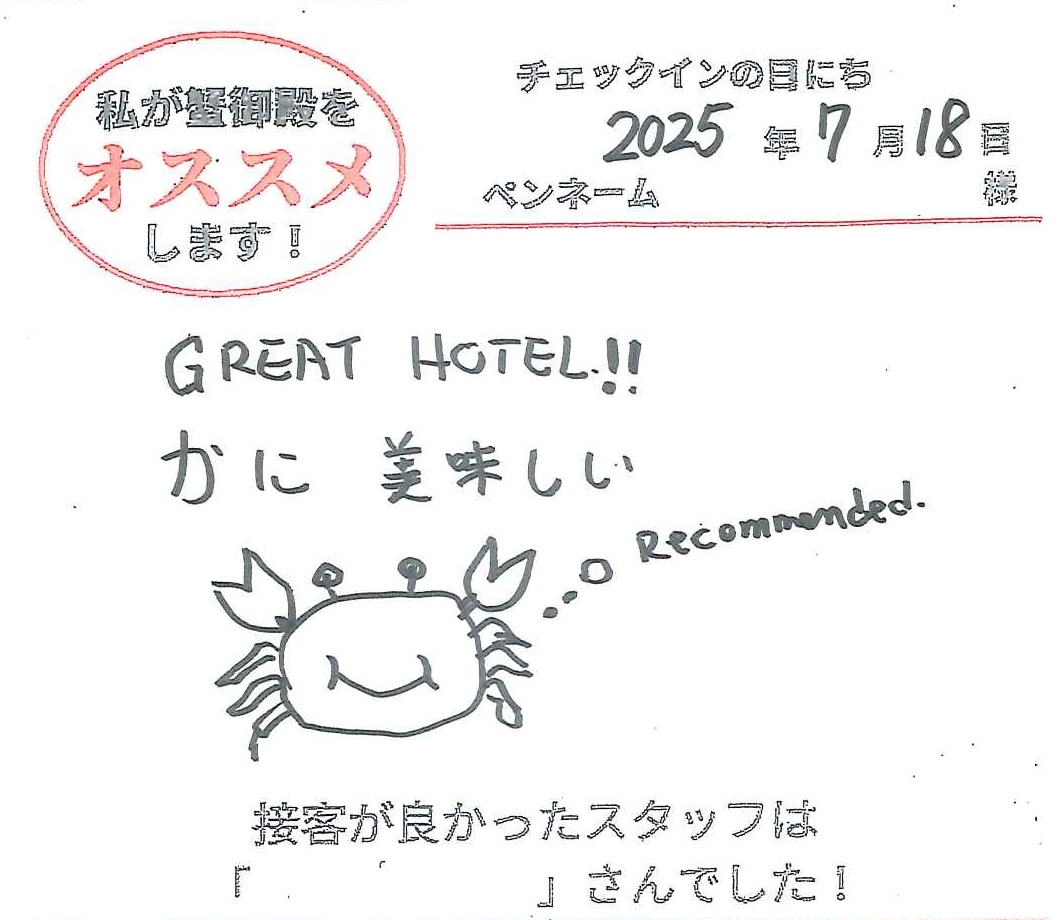 私が蟹御殿を
オススメ
します！
チェックインの日にち
2025 年 7 月 18 日
ペンネーム 様
GREAT HOTEL!!
かに 美味しい
Recommended.
接客が良かったスタッフは
「 」さんでした！